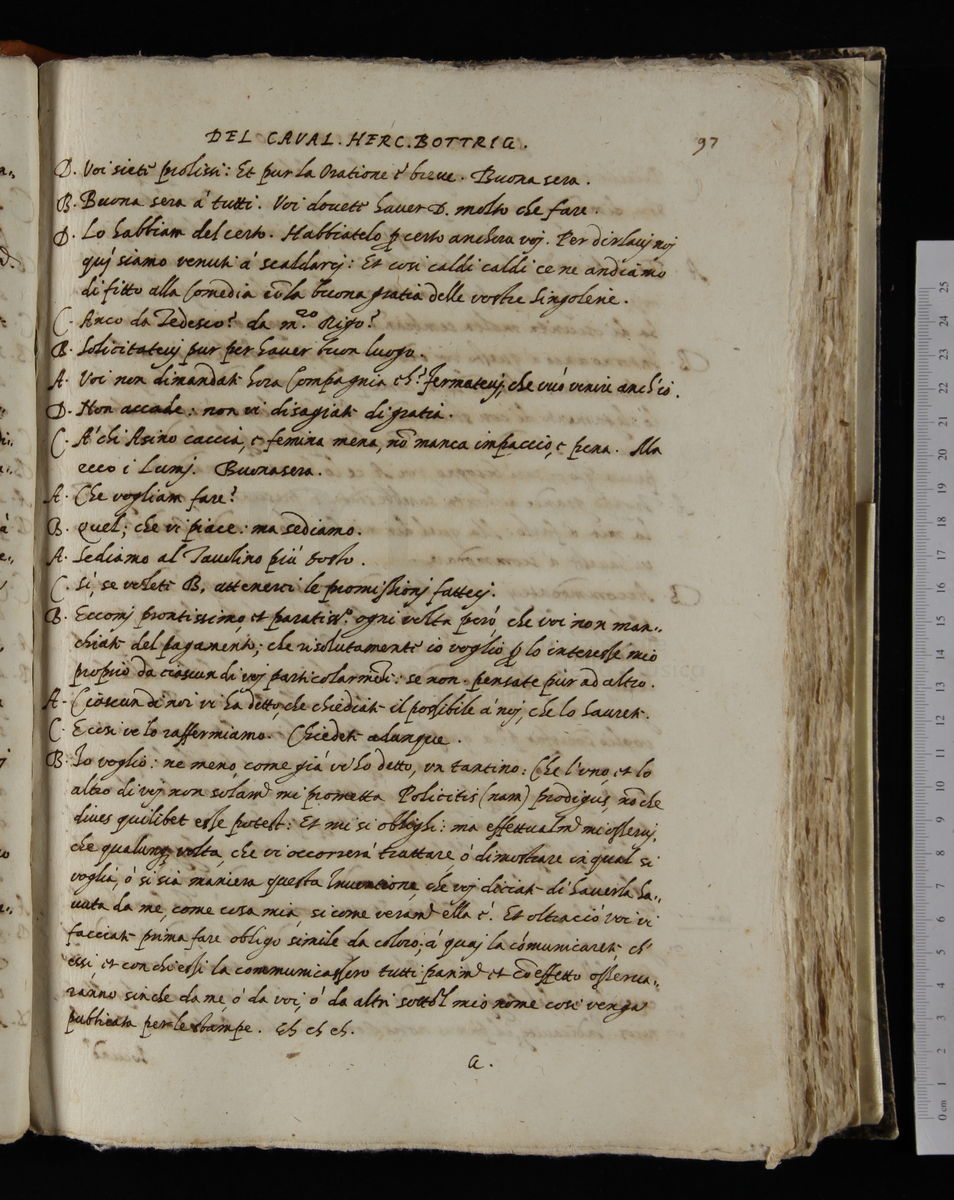 DEL CAVAL. HERC. BOTTRIG. 97
D. Voi siete prolissi: Et pur la Oratione è breve. Buona sera.
B. Buona sera à tutti. Voi dovete haver D. molto che fare.
D. Lo habbiam del certo. Habbiatelo p certo anchora voj. Per dirlavj noj
quj siamo venuti à scaldarcj: Et cosi caldi caldi ce ne andiamo
di fitto alla Comedia cõ la buona gratia delle vostre Singolerie.
C. Anco da Tedesco? da m.ro Rigo?
B. Solicitatevj pur per haver buon luogo.
A. Voi non dimandate hora Compagnia eh? Fermatevj, che vuò venire anch'io.
D. Non accade: non vi disagiate di gratia.
C. A' chi Asino caccia, e femina mena, nõ manca impaccio, e pena. Ma
ecco i Lumj. Buonasera.
A. Che vogliam fare?
B. Quel, che vi piace: ma sediamo.
A. Sediamo al Tavolino più tosto.
C. Sì, se volete B. attenerci le promissionj fattecj.
B. Eccomj prontissimo, et paratiss.o ogni volta però, che voi non man-
chiate del pagamento; che risolutamente io voglio p lo interesse mio
proprio da ciascun di voj particolarmẽte: se non. pensate pur ad altro.
A. Ciascun di noi vi ha detto, che chiediate il possibile à noj, che lo haurete.
C. E cosi ve lo raffermiamo. Chiedete adunque.
B. Io voglio: ne meno, come già vi ho detto, un tantino: Che l'uno, et lo
altro di voj non solam.te mi prometta Policitis (nam) prodigus nõche
dives quilibet esse potest: Et mi si oblighi: ma effettualm.te mi osservj,
che qualunq volta, che vi occorrerà trattare ò dimostrare in qual si
voglia, ò si sia maniera questa Inventione, che voj diciate di haverla ha-
vuta da me, come cosa mia, si come veram.te ella è. Et oltracciò voi vi
facciate prima fare obligo simile da coloro, à quaj la cómunicarete, ch'
essi, et con chi essi la communicassero tutti parim.te et cõ effetto osserva-
ranno sinche da me, ò da voi, ò da altri sotto'l mio nome così venga
publicata per le stampe. Eh eh eh.
A.